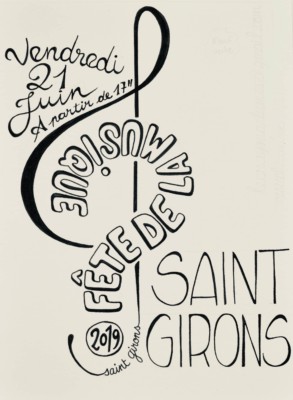 Vendredi
21
Juin
A partir de 17H
FÊTE DE LA MUSIQUE
SAINT
GIRONS
2019
saint girons